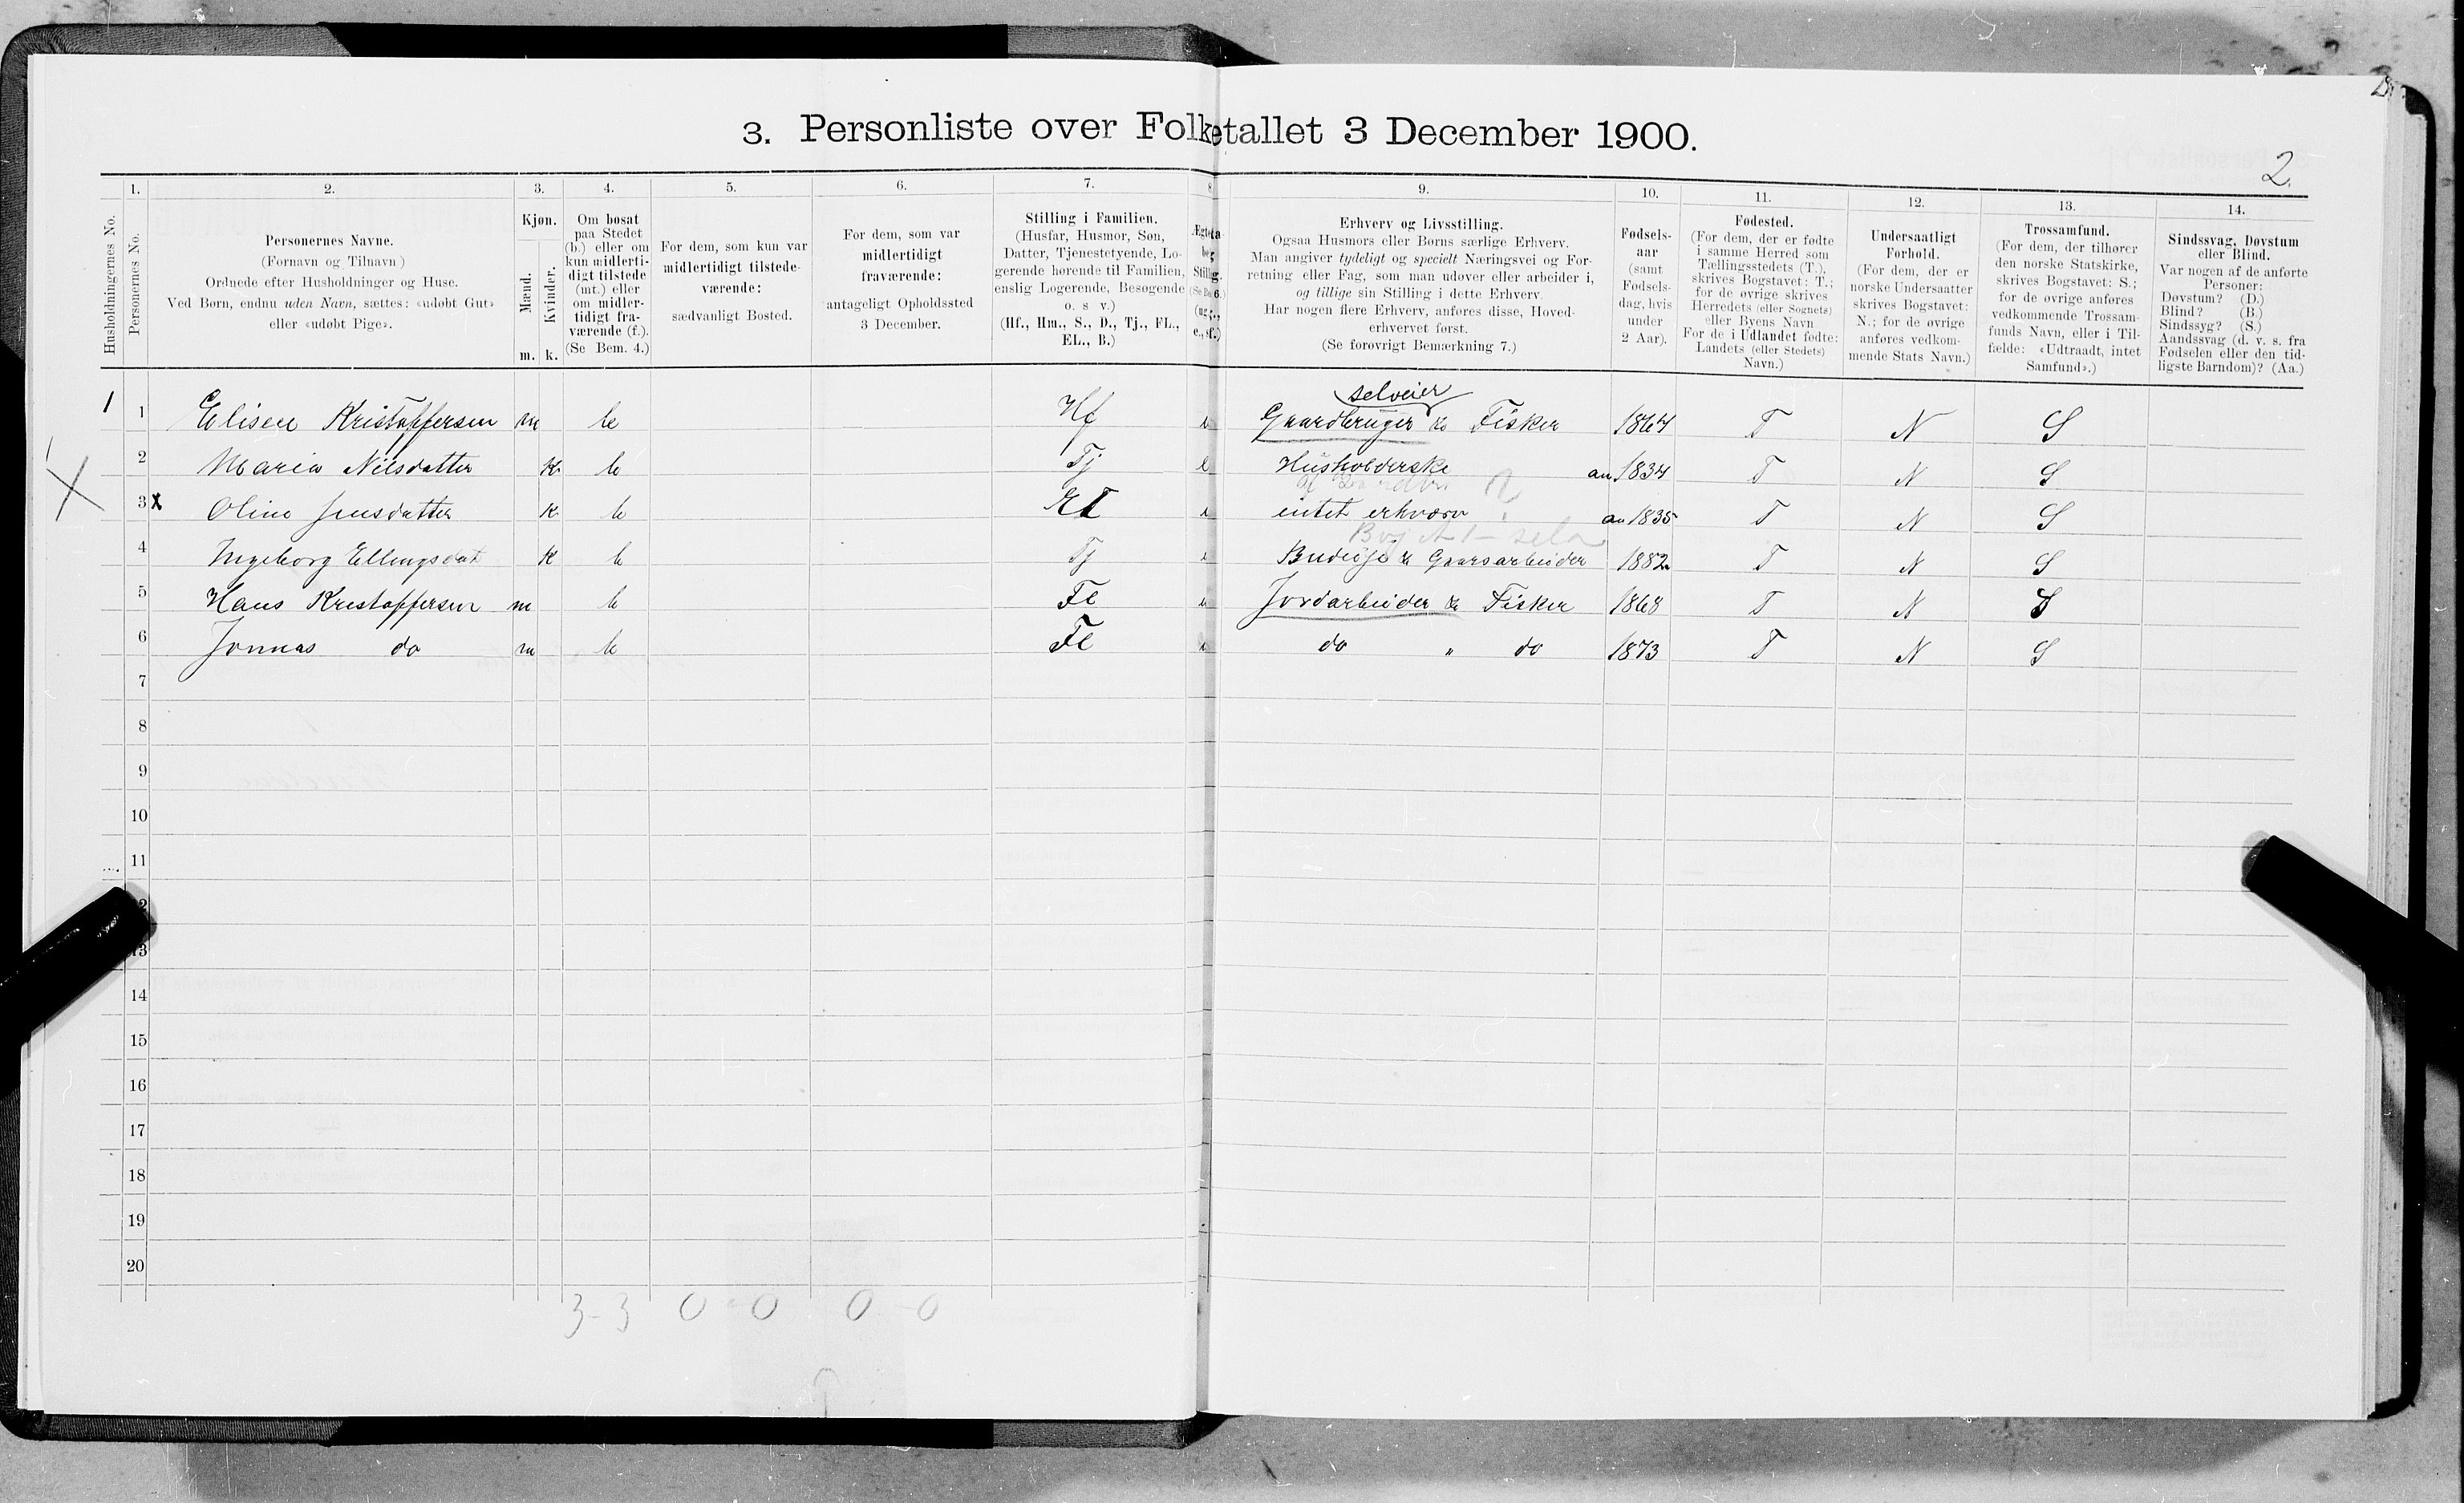 3. Personliste over Folketallet 3 December 1900.
2.
1. 2. 3. 4. 5. 6. 7. 8. 9. 10. 11. 12. 13. 14.
Husholdningernes No.
Personernes No.
Personernes Navne.
(Fornavn og Tilnavn)
Ordnede efter Husholdninger og Huse.
Ved Børn, endnu uden Navn, sættes: «udøbt Gut»
eller «udøbt Pige».
Kjøn.
Mænd.
Kvinder.
m. k.
Om bosat
paa Stedet
(b.) eller om
kun midlerti-
digt tilstede
(mt.) eller
om midler-
tidigt fra-
værende (f.).
(Se Bem. 4.)
For dem, som kun var
midlertidigt tilstede-
værende:
sædvanligt Bosted.
For dem, som var
midlertidigt
fraværende:
antageligt Opholdssted
3 December.
Stilling i Familien.
(Husfar, Husmor, Søn,
Datter, Tjenestetyende, Lo-
gerende hørende til Familien,
enslig Logerende, Besøgende
o. s v.)
(Hf., Hm., S., D., Tj., FL.,
EL., B.)
Erhverv og Livsstilling.
Ogsaa Husmors eller Børns særlige Erhverv.
Man angiver tydeligt og specielt Næringsvei og For-
retning eller Fag, som man udøver eller arbeider i,
og tillige sin Stilling i dette Erhverv.
Har nogen flere Erhverv, anføres disse, Hoved-
erhvervet først.
(Se forøvrigt Bemærkning 7.)
Fødsels-
aar
(samt
Fødsels-
dag, hvis
under
2 Aar).
Fødested.
(For dem, der er fødte
i samme Herred som
Tællingsstedets (T.),
skrives Bogstavet: T.;
for de øvrige skrives
Herredets (eller Sognets)
eller Byens Navn
For de i Udlandet fødte:
Landets (eller Stedets)
Navn.)
Undersaatligt
Forhold.
(For dem, der er
norske Undersaatter
skrives Bogstavet:
N.; for de øvrige
anføres vedkom-
mende Stats Navn.)
Trossamfund.
(For dem, der tilhører
den norske Statskirke,
skrives Bogstavet: S.;
for de øvrige anføres
vedkommende Trossam-
funds Navn, eller i Til-
fælde: «Udtraadt, intet
Samfund».)
Sindssvag, Døvstum
eller Blind.
Var nogen af de anførte
Personer:
Døvstum? (D.)
Blind? (B.)
Sindssyg? (S.)
Aandssvag (d. v. s. fra
Fødselen eller den tid-
ligste Barndom)? (Aa.)
selveier
1 1 Eliseu Kristoffersen m b Hf Gaardbruger & Fisker 1864 T N S
2 Maria Nilsdatter k b Tj Husholderske an 1834 T N S
3 x Oline Jensdatter k b EL intet erhverv an 1835 T N S
4 Ingeborg Ellingsdat k b Tj Budeije & Gaarsarbeider 1882 T N S
5 Hans Kristoffersen m b FL Jordarbeider & Fisker 1868 T N S
6 Jonnas do m b FL do " do 1873 T N S
7
8
9
10
11
2
13
14
15
16
17
18
19
20
3-3 0-0 0-0